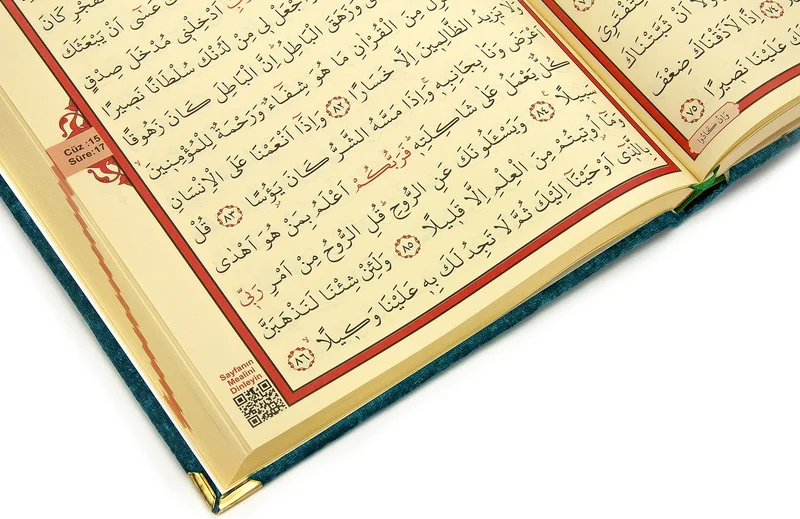 لِتَفْتَرِيَ
وْلَٓا اَنْ ثَبَّتْنَاكَ
﴿٧٤﴾ اِذًا لَاَذَقْنَاكَ ضِعْفَ
كَ عَلَيْنَا نَصِيرًا ﴿٧٥﴾
وَاِنْ كَادُوا
الْفَجْرِ كَانَ
عَسٰٓى اَنْ يَبْعَثَكَ
اَدْخِلْنِي مُدْخَلَ صِدْقٍ
جْعَلْ لِي مِنْ لَدُنْكَ سُلْطَانًا نَصِيرًا
وَزَهَقَ الْبَاطِلُ اِنَّ الْبَاطِلَ كَانَ زَهُوقًا
مِنَ الْقُرْاٰنِ مَا هُوَ شِفَٓاءٌ وَرَحْمَةٌ لِلْمُؤْمِنِينَ
وَلَا يَزِيدُ الظَّالِمِينَ اِلَّا خَسَارًا ﴿٨٢﴾ وَاِذَٓا اَنْعَمْنَا عَلَى الْاِنْسَانِ
اَعْرَضَ وَنَاٰ بِجَانِبِهِ وَاِذَا مَسَّهُ الشَّرُّ كَانَ يَؤُسًا ﴿٨٣﴾ قُلْ
كُلٌّ يَعْمَلُ عَلٰى شَاكِلَتِهِ فَرَبُّكُمْ اَعْلَمُ بِمَنْ هُوَ اَهْدٰى
سَبِيلًا ﴿٨٤﴾ وَيَسْـَٔلُونَكَ عَنِ الرُّوحِ قُلِ الرُّوحُ مِنْ اَمْرِ رَبِّي
وَمَٓا اُوتِيتُمْ مِنَ الْعِلْمِ اِلَّا قَلِيلًا ﴿٨٥﴾ وَلَئِنْ شِئْنَا لَنَذْهَبَنَّ
بِالَّذِٓي اَوْحَيْنَٓا اِلَيْكَ ثُمَّ لَا تَجِدُ لَكَ بِهِ عَلَيْنَا وَكِيلًا ﴿٨٦﴾
Cüz :15
Sûre:17
Sayfanın
Mealini
Dinleyin